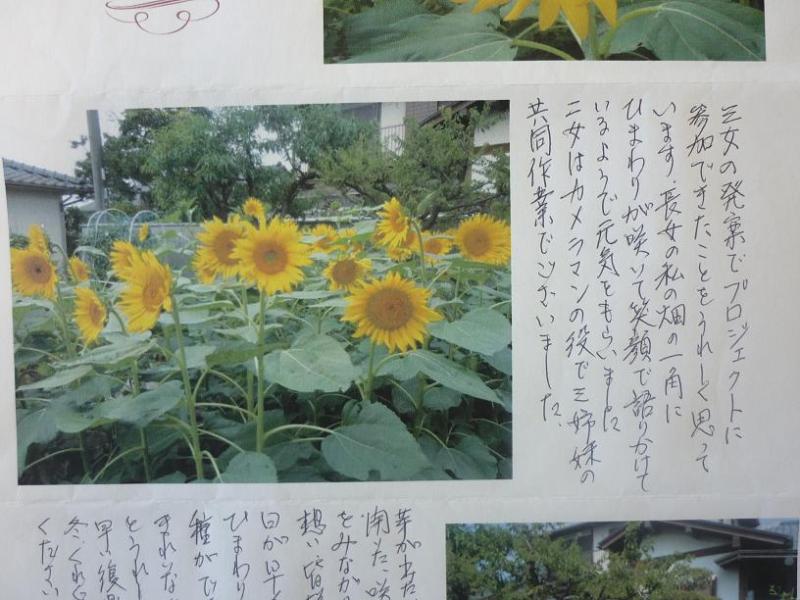 三女の発案でプロジェクトに
参加できたことをうれしく思って
います。長女の私の畑の一角に
ひまわりが咲いて笑顔で語りかけて
いるようで元気をもらいました
二女はカメラマンの役で三姉妹の
共同作業でございました。
芽が出た
開た、咲
をみなが
想い皆様
日が早く
ひまわり
種がで
きれいな
とうれし
早い復
冬、くれぐ
ください